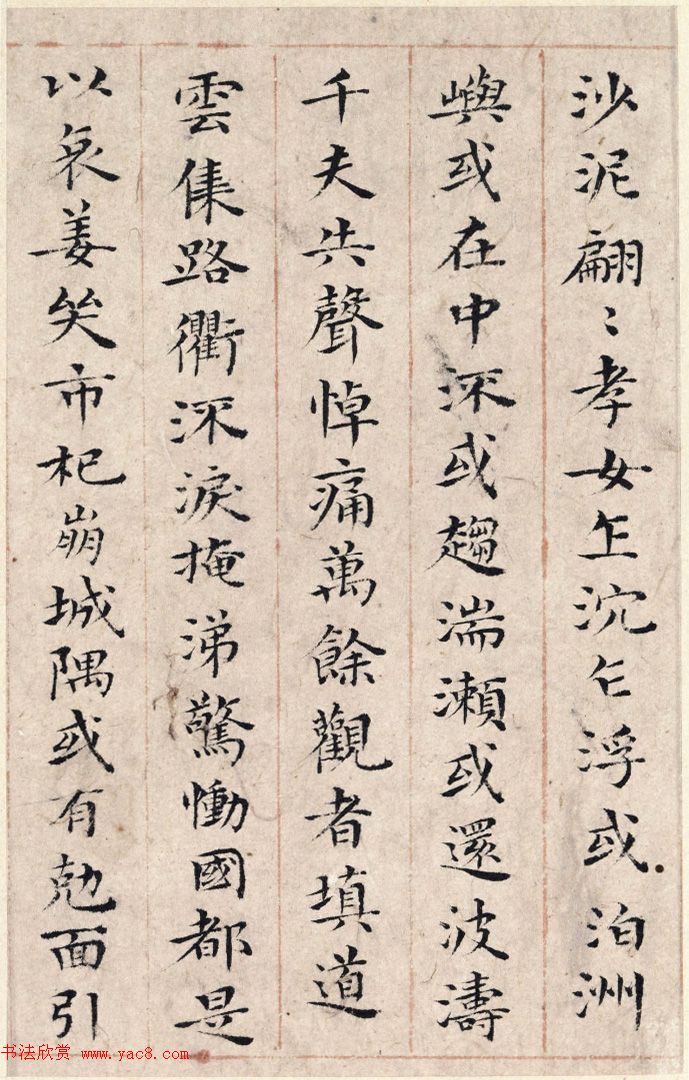 沙泥翩〻孝女乍沉乍浮或泊洲
嶼或在中深或趨湍瀨或還波濤
千夫共聲悼痛萬餘觀者填道
雲集路衢深淚掩涕驚慟國都是
以哀姜哭市杞崩城隅或有勊面引
书法欣赏 www.yac8.com